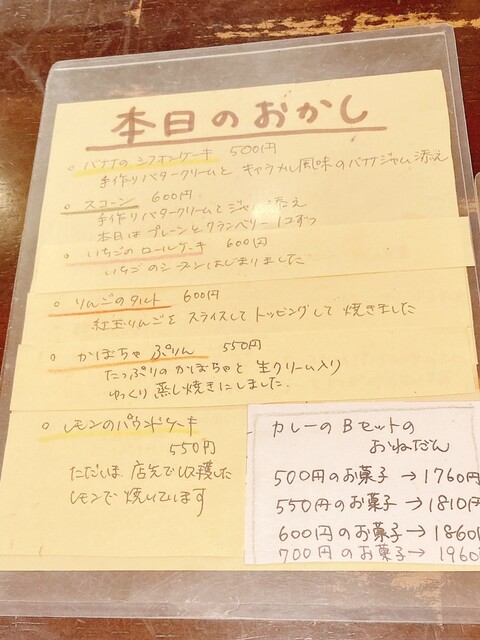 本日のおかし
○ バナナのシフォンケーキ 500円
手作りバタークリームと キャラメル風味のバナナジャム添え
○ スコーン 600円
手作りバタークリームとジャム添え
本日はプレーンとクランベリー 1コずつ
○ いちごのロールケーキ 600円
いちごのシーズンはじまりました
○ りんごのタルト 600円
紅玉りんごを スライスして トッピングして 焼きました
○ かぼちゃぷりん 550円
たっぷりの かぼちゃと 生クリーム入り
ゆっくり 蒸し焼きにしました.
○ レモンのパウンドケーキ
550円
ただいま 店先で収穫した
レモンで 焼いています
カレーの Bセットの
おねだん
500円のお菓子 → 1760円
550円のお菓子 → 1810円
600円のお菓子 → 1860円
700円のお菓子 → 1960円